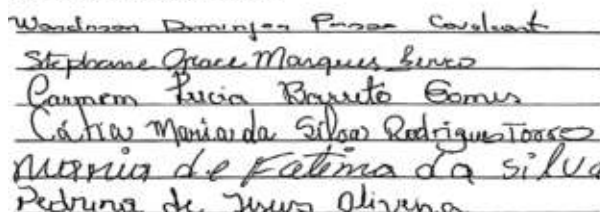 Wandnson Domingos Passos Cavalcant
Stephane Grace Marques Serco
Carmem Lucia Barreto Gomes
Cátia Maria da Silva Rodrigues Torres
Maria de Fatima da Silva
Pedrina de Jesus Oliveira